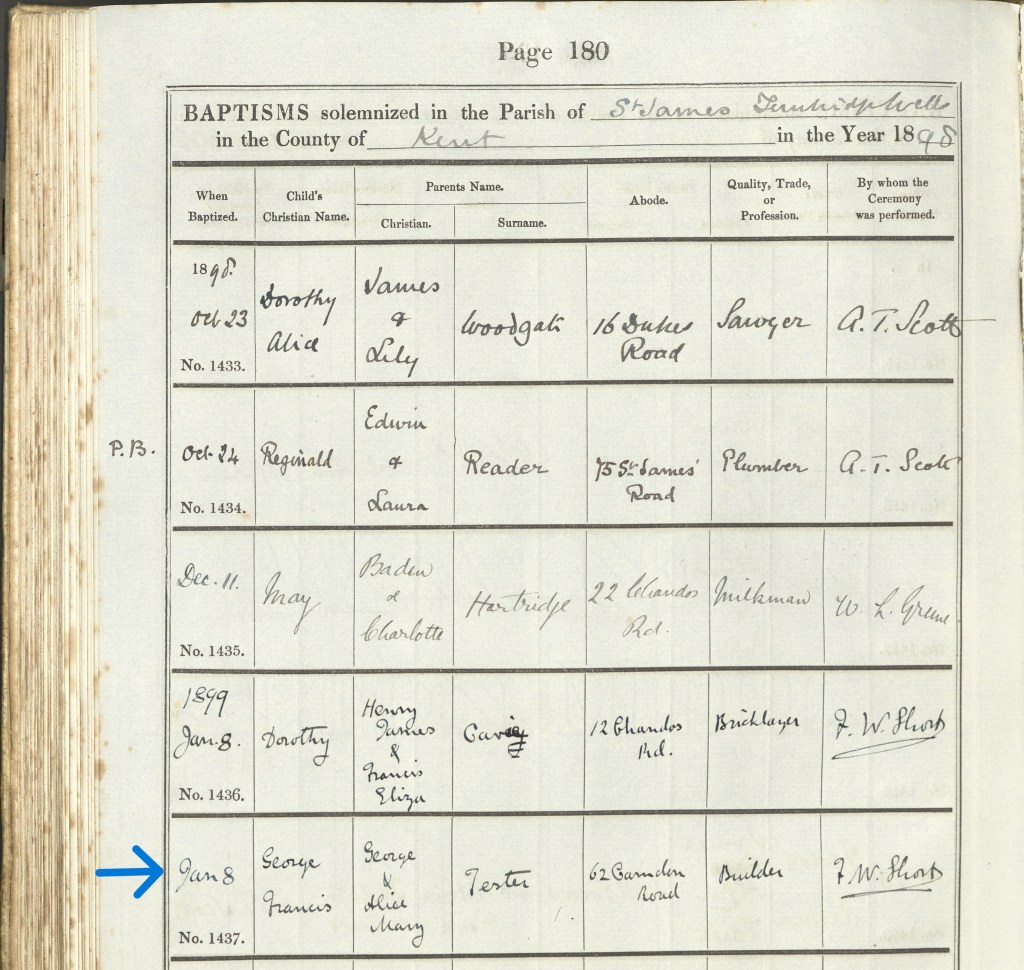 Page 180
BAPTISMS solemnized in the Parish of St James Tunbridge Wells
in the County of Kent in the Year 1898
When Baptized.
Child's Christian Name.
Parents Name.
Christian.
Surname.
Abode.
Quality, Trade, or Profession.
By whom the Ceremony was performed.
1898.
Oct 23
No. 1433.
Dorothy
Alice
James
&
Lily
Woodgate
16 Dukes
Road
Sawyer
A. T. Scott
P.B.
Oct 24
No. 1434.
Reginald
Edwin
&
Laura
Reader
75 St James'
Road
Plumber
A. T. Scott
Dec. 11.
No. 1435.
May
Baden
&
Charlotte
Hartridge
22 Chandos
Rd.
Milkman
W. L. Greene
1899
Jan. 8.
No. 1436.
Dorothy
Henry
James
&
Francis
Eliza
12 Chandos
Rd.
Bricklayer
F. W. Short
Jan 8
No. 1437.
George
Francis
George
&
Alice
Mary
Tester
62 Camden
Road
Builder
F. W. Short